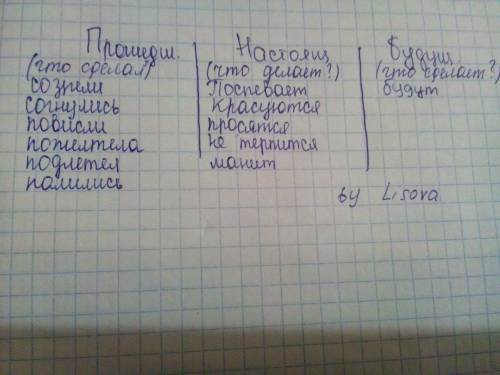 Прошедш. Настоящ Будущ
(что сделал) (что делает?) (что сделает?)
созрели Поспевает будут
согнулись красуются
повисли просятся
пожелтела не терпится
подлетел манит
налились
by Lisova